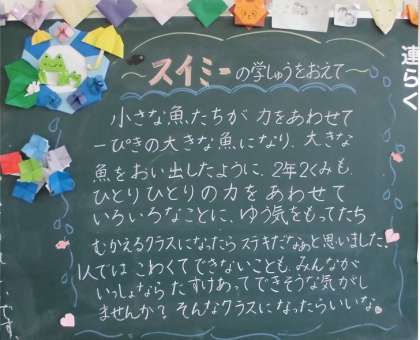 ～スイミーの学しゅうをおえて～
小さな魚たちが 力をあわせて
一ぴきの大きな魚になり、大きな
魚をおい出したように、2年2くみも、
ひとりひとりの力をあわせて
いろいろなことに、ゆう気をもってたち
むかえるクラスになったらステキだなぁと思いました。
1人では こわくてできないことも、みんなが
いっしょなら たすけあってできそうな気がし
ませんか？そんなクラスになったらいいな。
連らく
です。